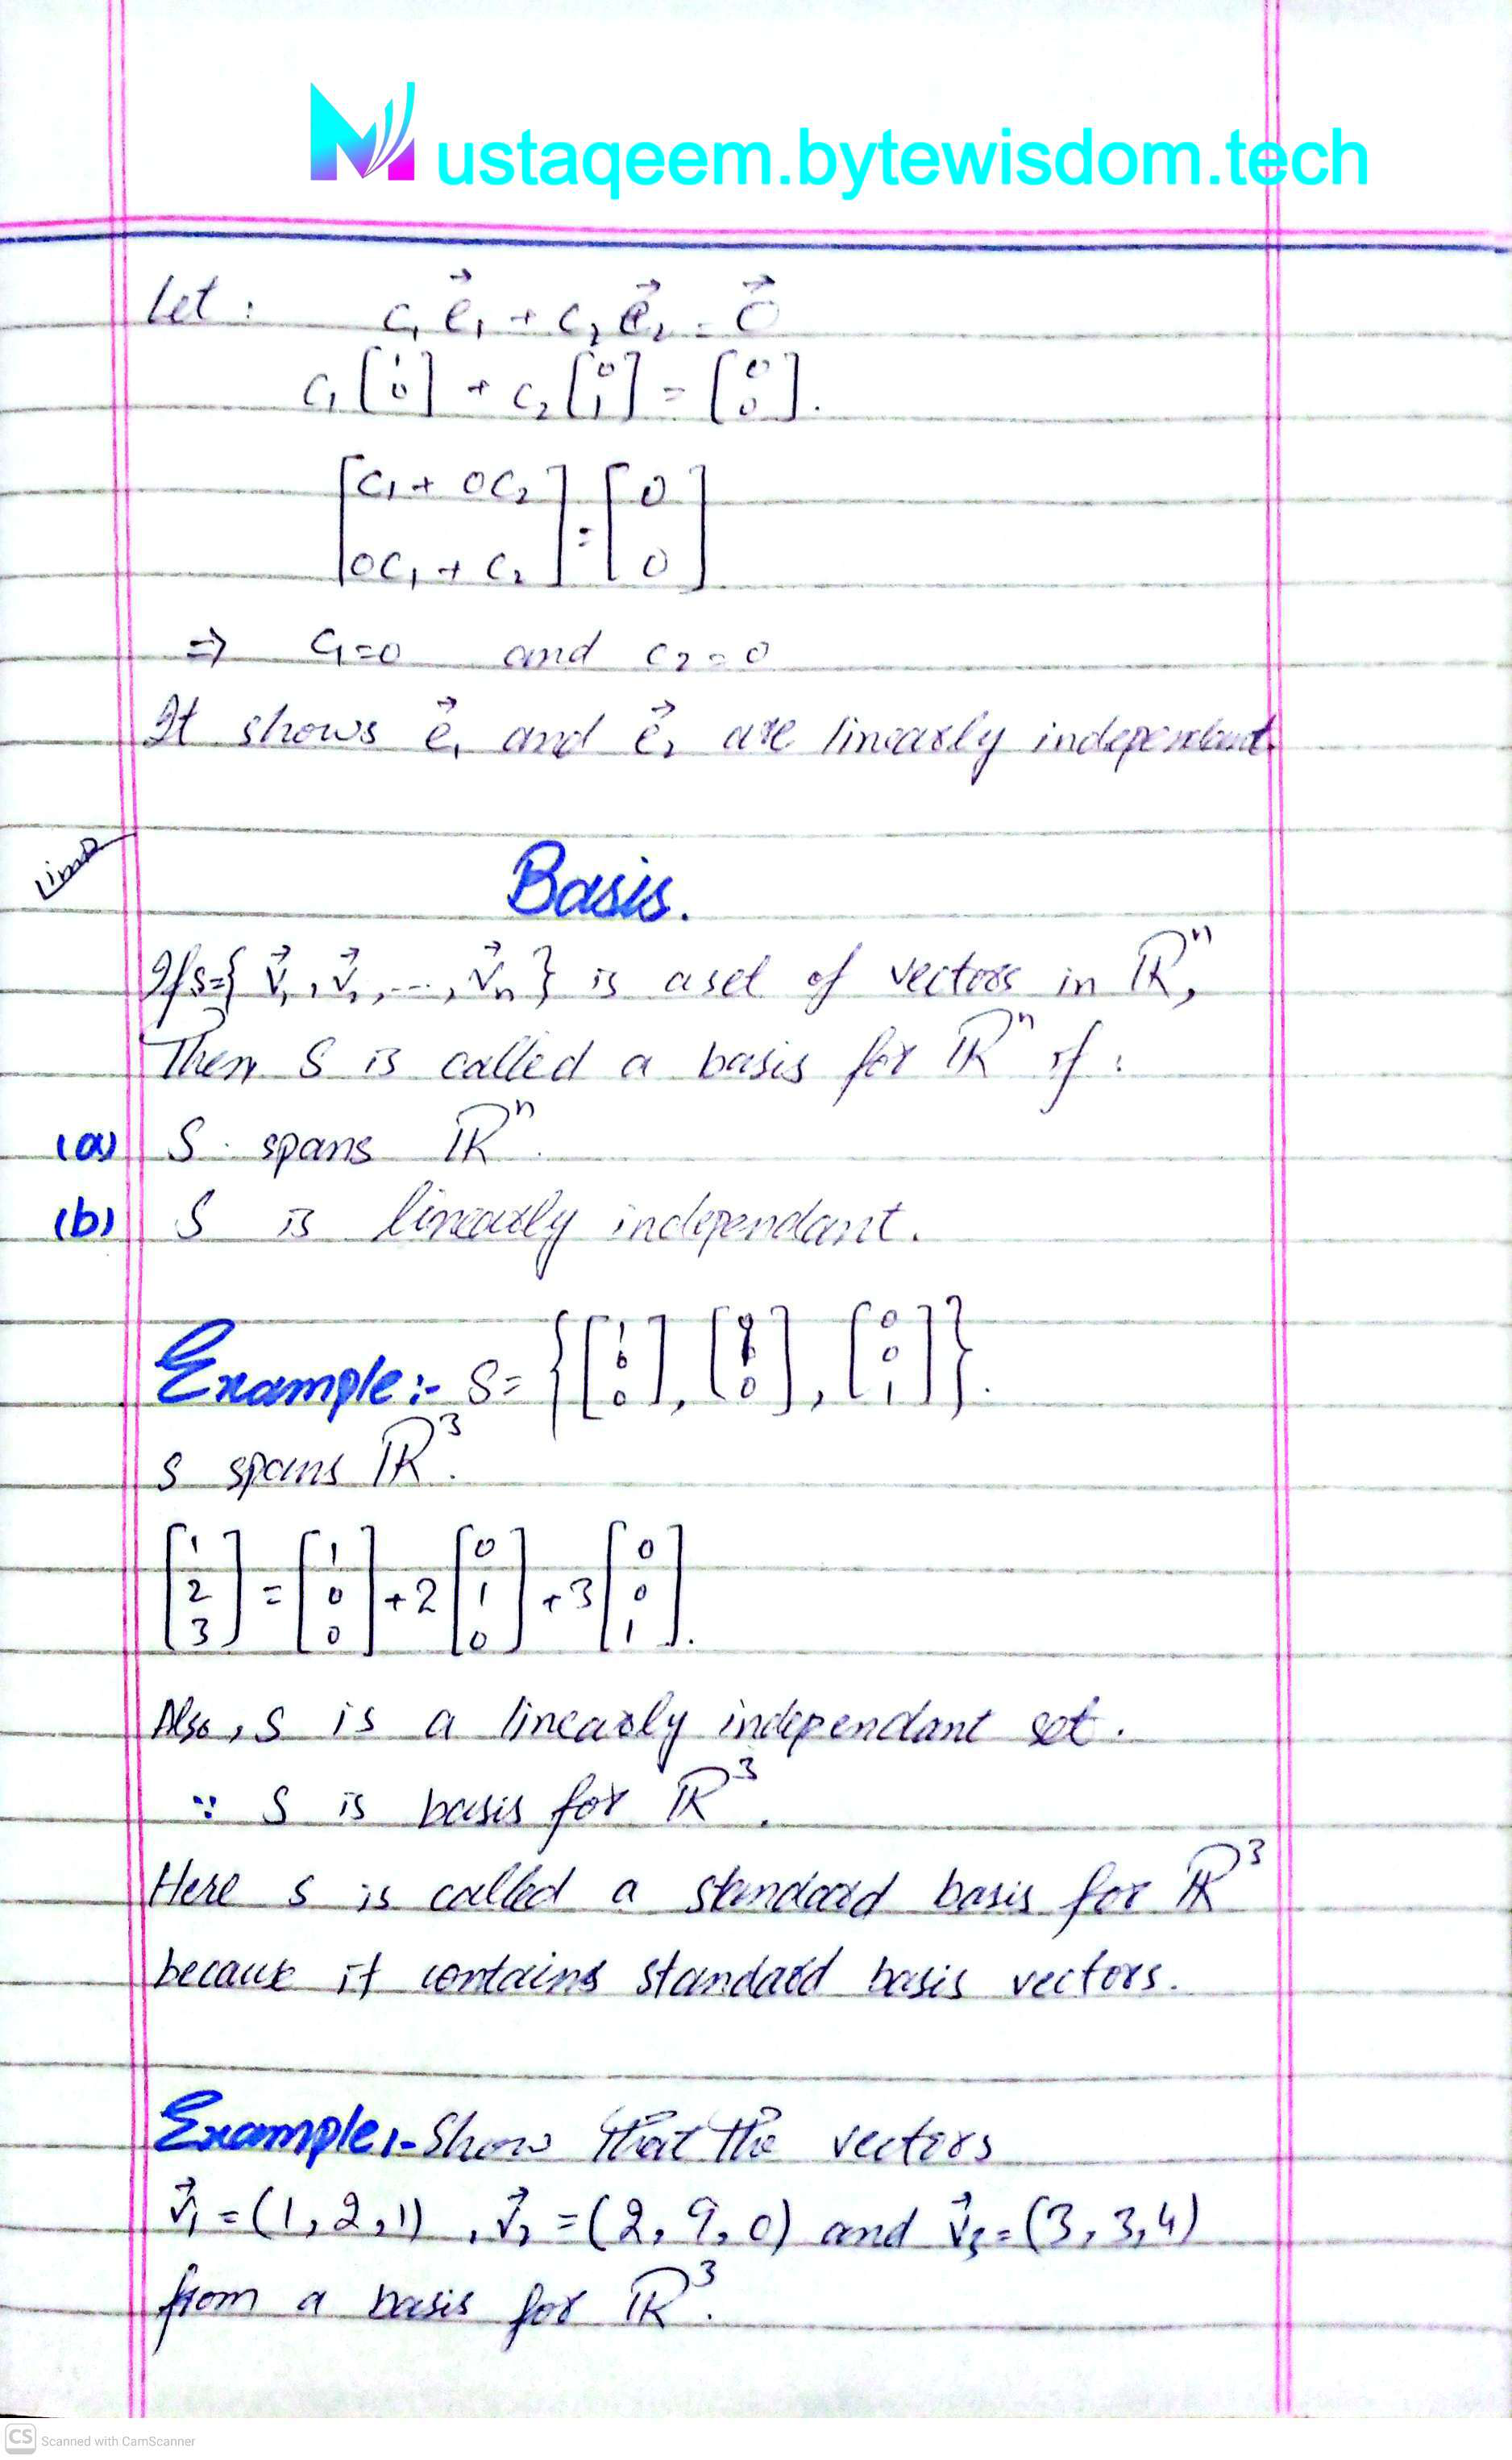 Mustaqeem.bytewisdom.tech
Let : c₁e⃗₁ + c₂e⃗₂ = 0⃗
c₁[1 0] + c₂[0 1] = [0 0].
[c₁ + 0c₂
0c₁ + c₂] = [0 0]
⇒ c₁=0 and c₂=0
It shows e⃗₁ and e⃗₂ are linearly independant.
Basis.
If s={v⃗₁, v⃗₂, ..., v⃗n} is a set of vectors in ℝⁿ,
Then S is called a basis for ℝⁿ if :
(a) S spans ℝⁿ.
(b) S is linearly independant.
Example:- S= {[1 0 0], [0 1 0], [0 0 1]}.
S spans ℝ³.
[1 2 3] = [1 0 0] + 2[0 1 0] + 3[0 0 1].
Also, S is a linearly independant set.
∵ S is basis for ℝ³.
Here S is called a standard basis for ℝ³
because it contains standard basis vectors.
Example:- Show that the vectors
v⃗₁ = (1, 2, 1), v⃗₂ = (2, 9, 0) and v⃗₃ = (3, 3, 4)
from a basis for ℝ³.
CS Scanned with CamScanner